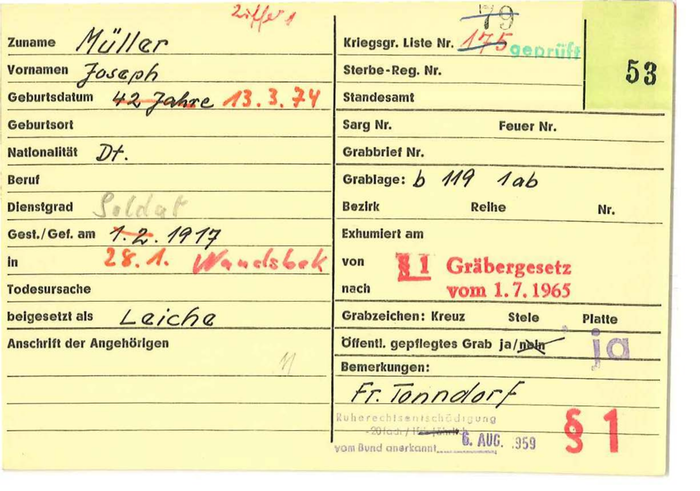 Ziffer 1
Zuname Müller
Vornamen Joseph
Geburtsdatum 42 Jahre 13.3.74
Geburtsort
Nationalität Dt.
Beruf
Dienstgrad Soldat
Gest./Gef. am 1.2. 1917
in 28.1. Wandsbek
Todesursache
beigesetzt als Leiche
Anschrift der Angehörigen
79
Kriegsgr. Liste Nr. 175 geprüft
53
Sterbe-Reg. Nr.
Standesamt
Sarg Nr. Feuer Nr.
Grabbrief Nr.
Grablage: b 119 1ab
Bezirk Reihe Nr.
Exhumiert am
von § 1 Gräbergesetz
nach vom 1.7.1965
Grabzeichen: Kreuz Stele Platte
Öffentl. gepflegtes Grab ja/nein ja
Bemerkungen:
Fr. Tonndorf
Ruherechtsentschädigung
vom Bund anerkannt 6. AUG. 1959
§ 1